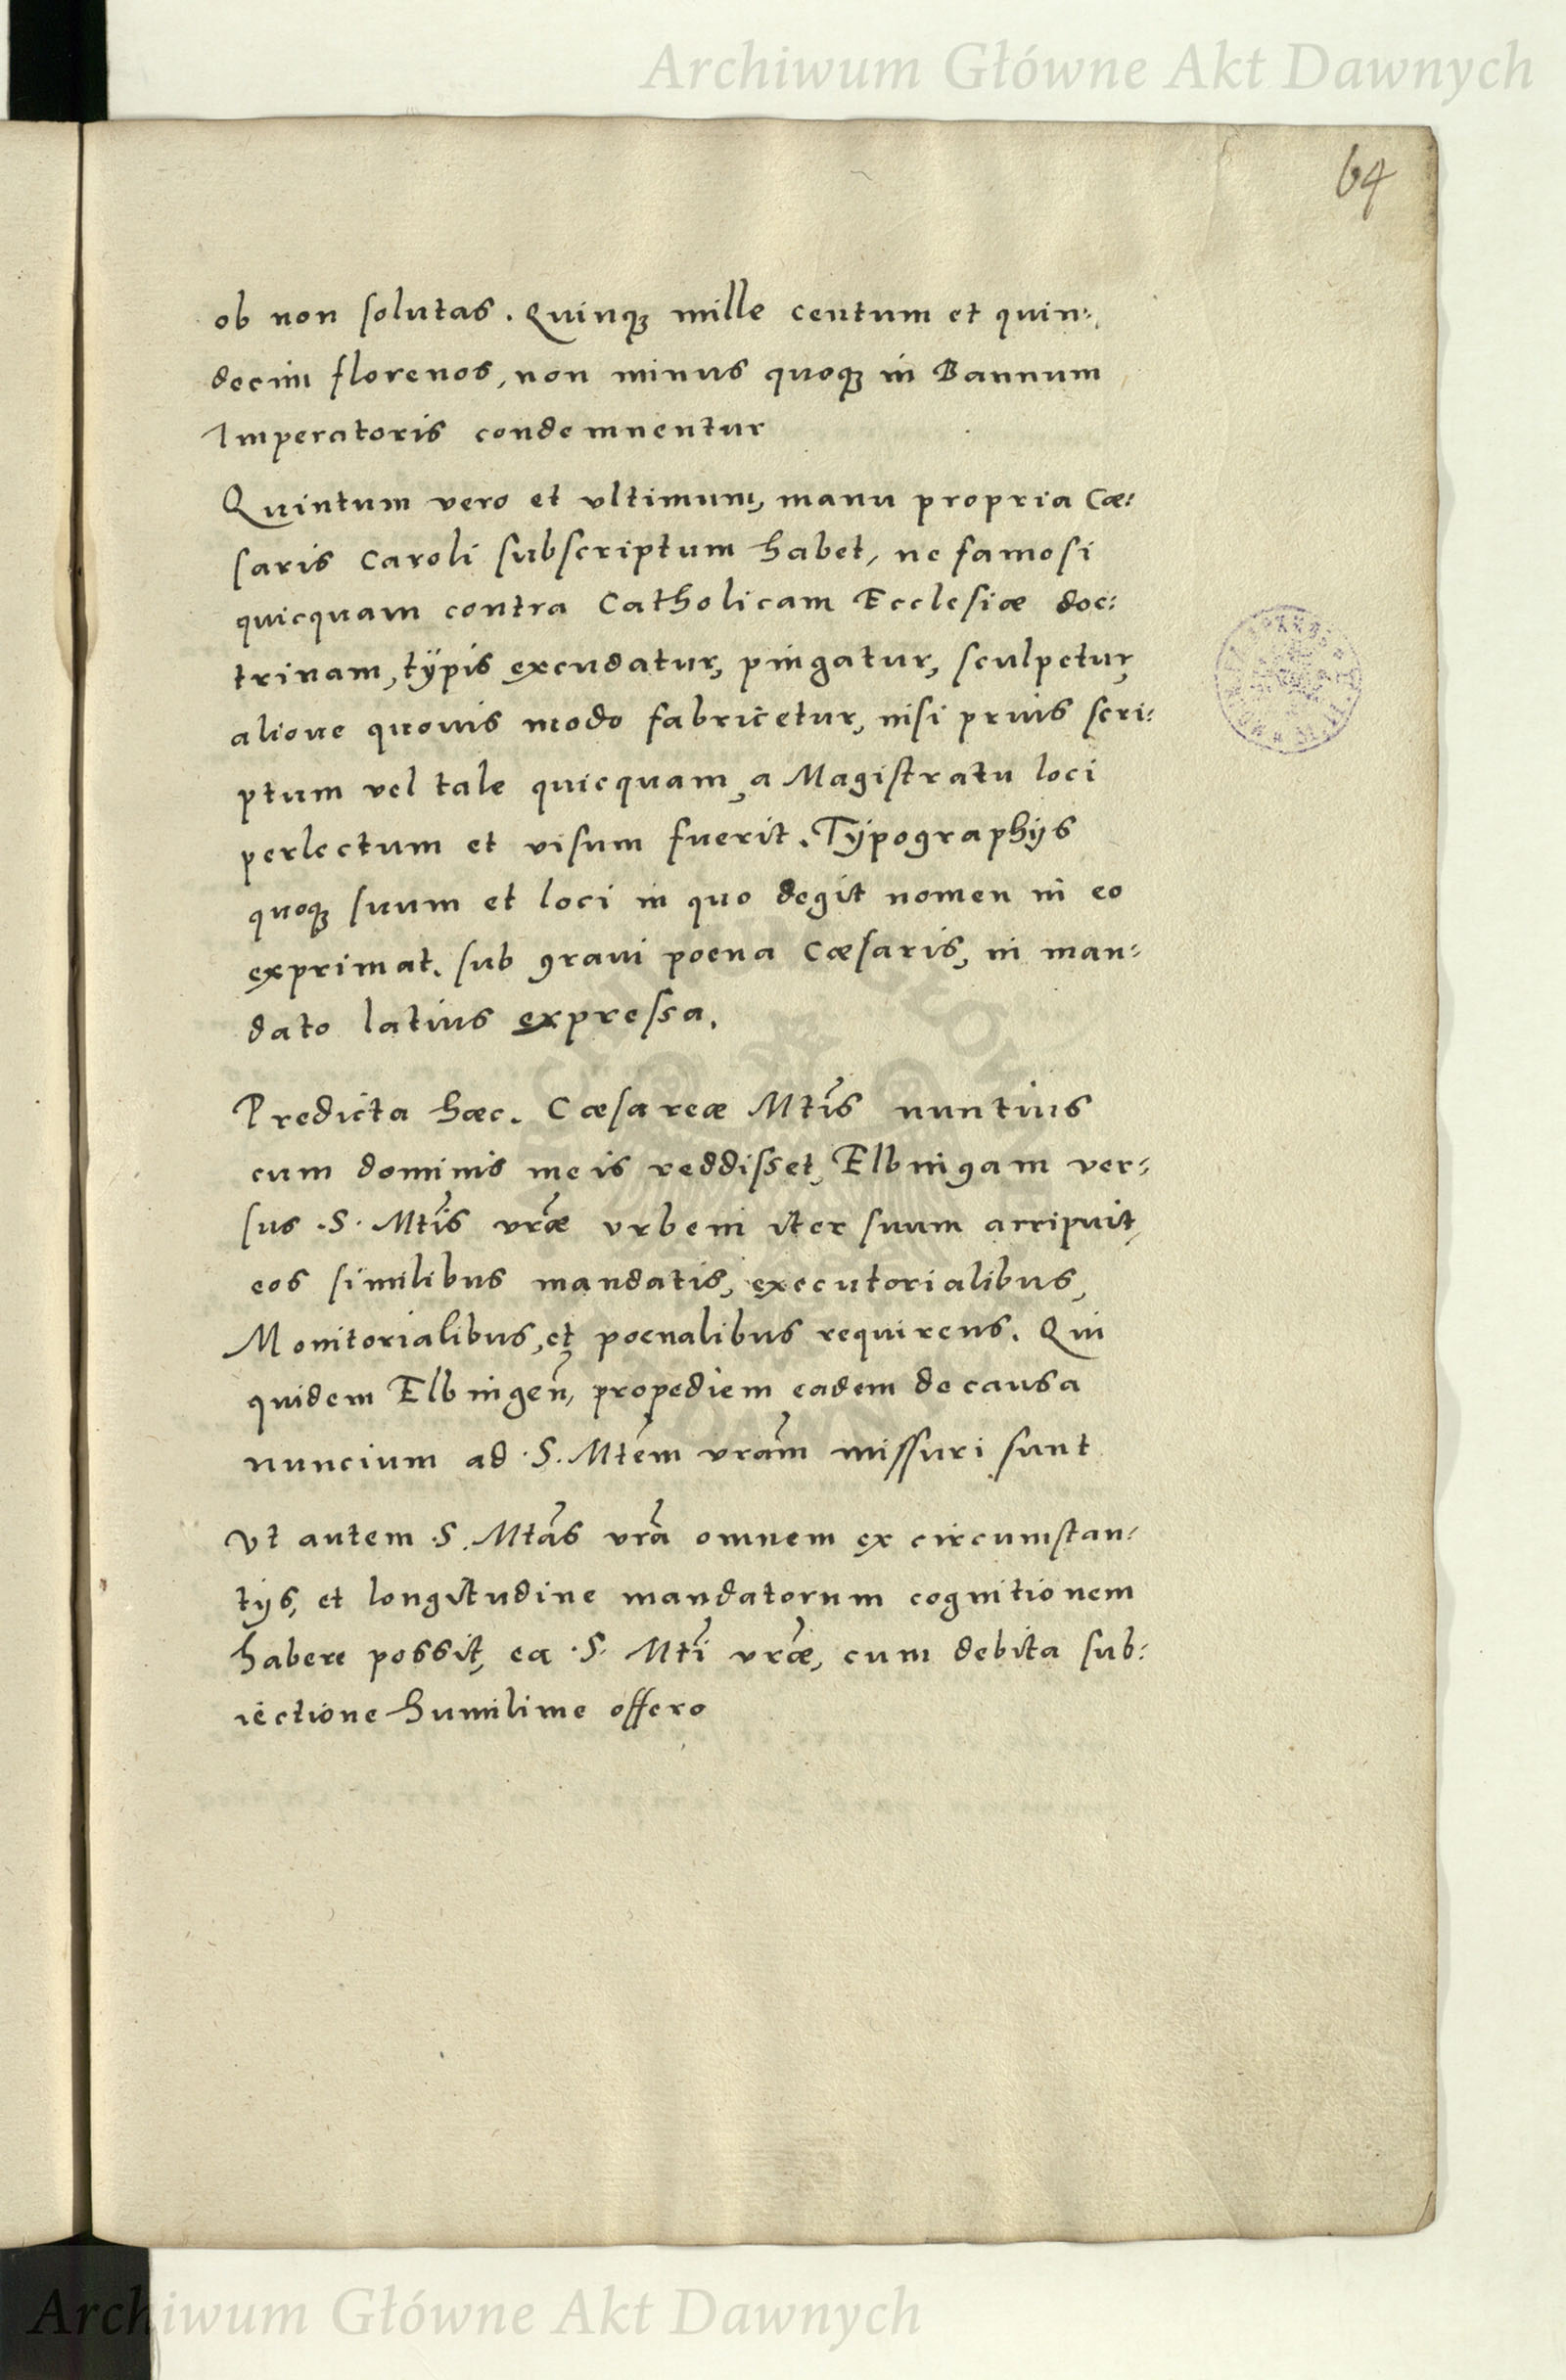 Archiwum Główne Akt Dawnych
64
ob non solutas. Quinqꝫ mille centum et quin:
decim florenos, non minus quoqꝫ in Bannum
Imperatoris condemnentur
Quintum vero et vltimum, manu propria Cæ:
saris Caroli subscriptum habet, ne famosi
quicquam contra Catholicam Ecclesiæ doc:
trinam, tÿpis excudatur, pingatur, sculpetur,
alioue quouis modo fabricetur, nisi prius scri:
ptum vel tale quicquam, a Magistratu loci
perlectum et visum fuerit. Typographijs
quoqꝫ suum et loci in quo degit nomen in eo
exprimat. sub graui poena Cæsaris, in man:
dato latius expressa.
Predicta hæc. Cæsareæ Mtis nuntius
cum dominis meis reddisset, Elbingam ver:
sus .S. Mtis vræ vrbem iter suum arripuit,
eos similibus mandatis, executorialibus,
Monitorialibus, et poenalibus requirens. Qui
quidem Elbingen, propediem eadem de causa
nuncium ad .S. Mtem vram missuri sunt
Vt autem .S. Mtas vra omnem ex circumstan:
tijs, et longitudine mandatorum cognitionem
habere possit, ea .S. Mti vræ, cum debita sub:
iectione humilime offero
Archiwum Główne Akt Dawnych